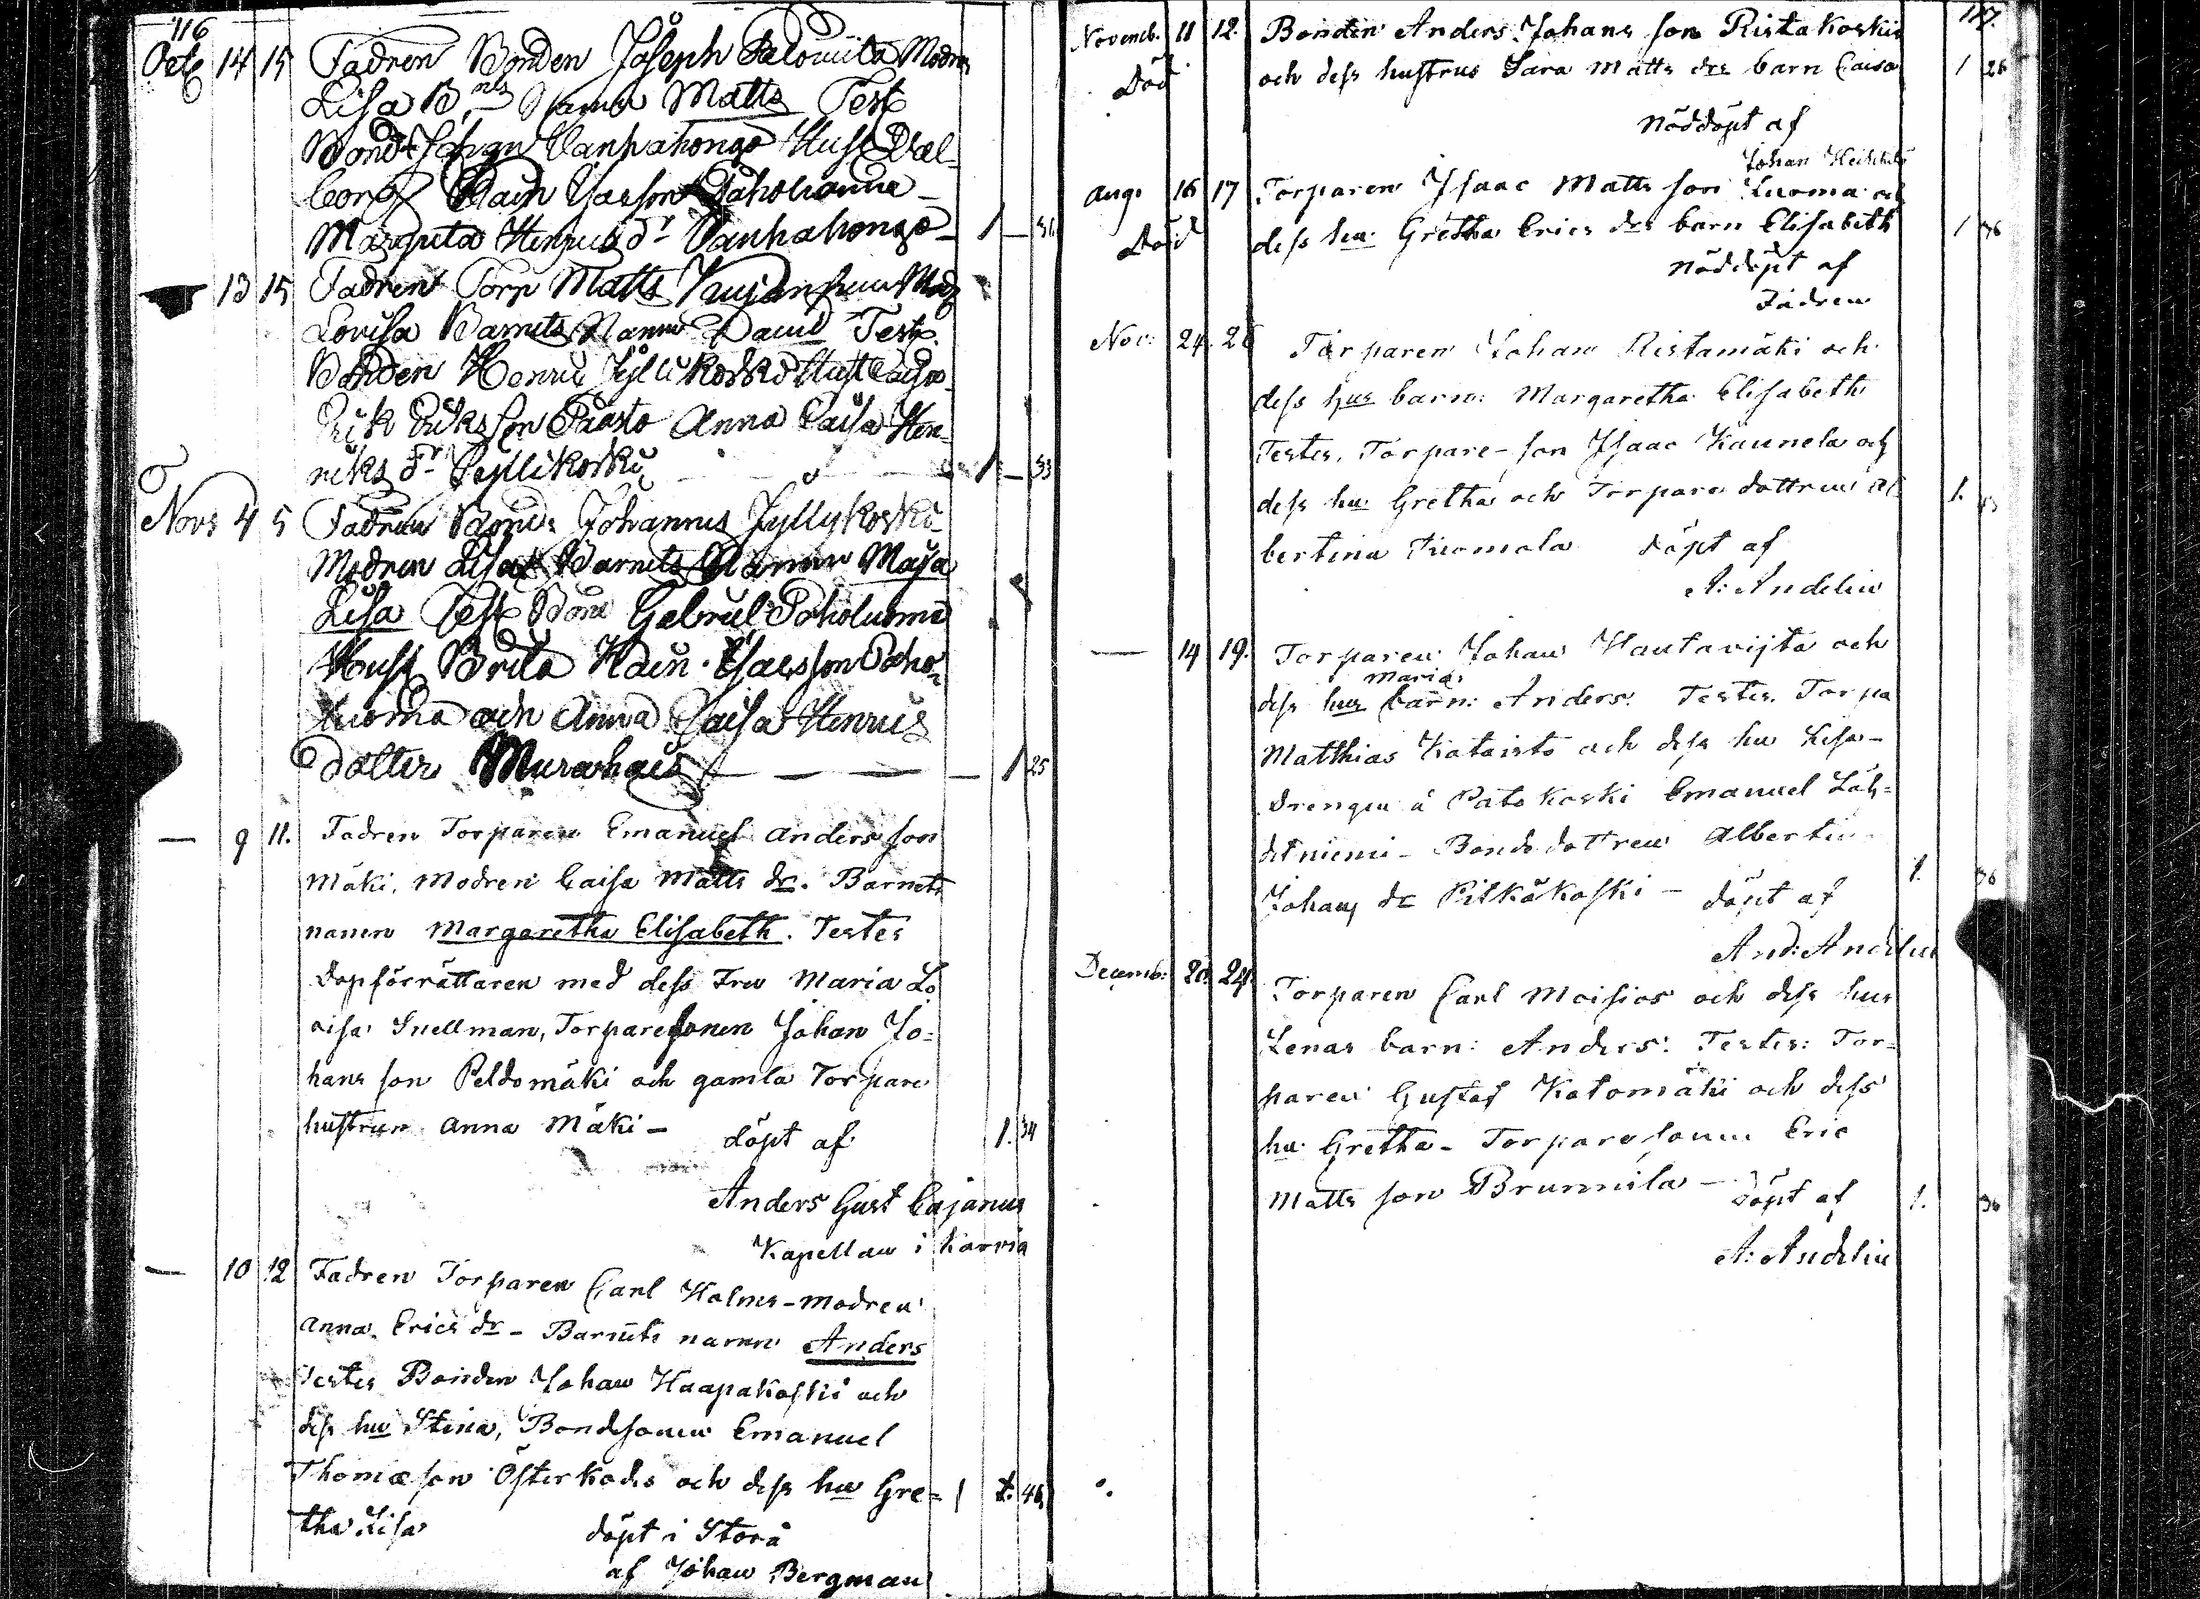 116
Octe 14 15 Fadren Bonden Joseph Salomila Modren
Lisa B:nts Namn Matts Test
Bond Johan Vanhahongo Hust Wal-
borg Hein Isacson Paholuoma
Margreta Henrics dr Vanhahongo 1
13 15 Fadren Torp Matts Modr
Lovisa Barnets Namn David Test.
Bonden Henric Jyllikoski Hust Caisa
Erik Eriksson Paasto Anna Caisa Hen-
riks dr Jyllikoski 1 33
Novr 4 5 Fadren Bond: Johannes Jyllykoski
Modren Lisa Barnets Namn Maja
Lisa Test Bond Gabriel Poholuoma
Hust Brita Hein. Isacsson Poho-
luoma och Anna Caisa Henrics
dotter Muranhais 1 25
— 9 11. Fadren Torparen Emanuel Anders son
Mäki, Modren Caisa Matts dr. Barnets
namn Margaretha Elisabeth. Testes
Dopförrättaren med dess Fru Maria Lo
visa Snellman, Torparesonen Johan Jo=
hans son Peldomäki och gamla Torpare
hustrun Anna Mäki – döpt af 1. 34
Anders Gust Cajanus
Kapellan i Karvia
— 10 12 Fadren Torparen Carl Holms – modren
Anna Erics dr – Barnets namn Anders
Testes Bonden Johan Haapakoski och
dess hu Stina, Bondsonen Emanuel
Thomæson Österkads och dess hu Gre= 1
tha Lisa döpt i Storå
af Johan Bergman
117.
Novemb. 11 12. Bonden Anders Johans son Ristakoski
Död och dess hustrus Sara Matts drs barn Caisa 1 26
Nöddöpt af
Johan Heikkilä
Aug. 16 17 Torparen Isaac Matts son Luoma och
Död dess hu: Gretha Erics drs barn Elisabeth 1 36
Nöddöpt af
Fadren
Nov: 24. 26 Torparen Johan Ristamäki och
dess hus barn: Margaretha Elisabeth
Testes, Torpare-son Isaac Kaunela och
dess hu: Gretha och Torpare dottren Al 1.
bertina Tuomola döpt af
A: Andelin
— 14 19. Torparen Johan Hautavijta och
Marias
dess hus barn: Anders: Testes. Torpa
Matthias Kataisto och dess hu Lisa –
Drengen å Patokoski Emanuel Läh=
detniemi – Bonde dottren Albertin
Johans dr Pitkäkoski – döpt af 1. 36
And: Andelin
Decemb: 20. 24. Torparen Carl Moisios och dess hus
Lenas barn: Anders: Testes: Tor=
paren Gustaf Katomäki och dess
hu: Gretha – Torpare sonen Eric
Matts son Brunnila – döpt af 1. 36
A: Andelin